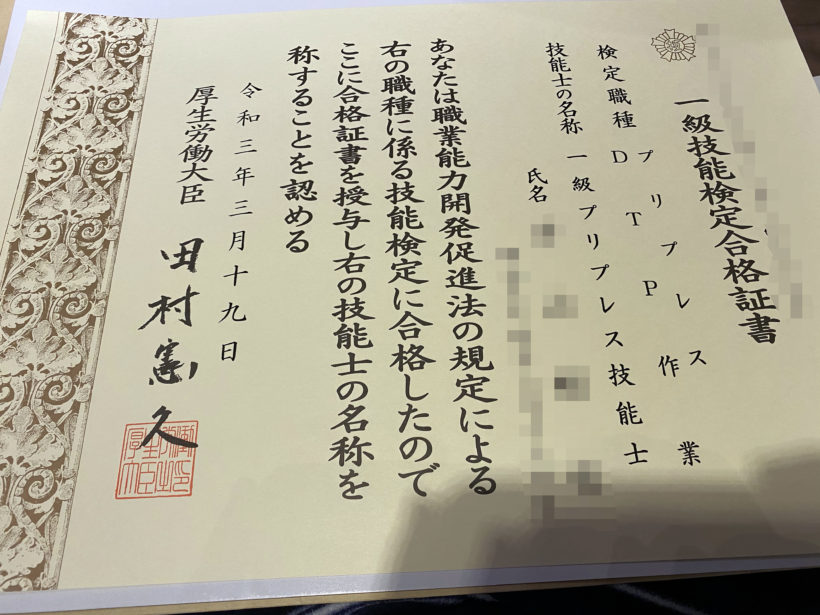 一級技能検定合格証書
検定職種 プリプレス
DTP作業
技能士の名称 一級プリプレス技能士
氏名
あなたは職業能力開発促進法の規定による
右の職種に係る技能検定に合格したので
ここに合格証書を授与し右の技能士の名称を
称することを認める
令和三年三月十九日
厚生労働大臣 田村憲久